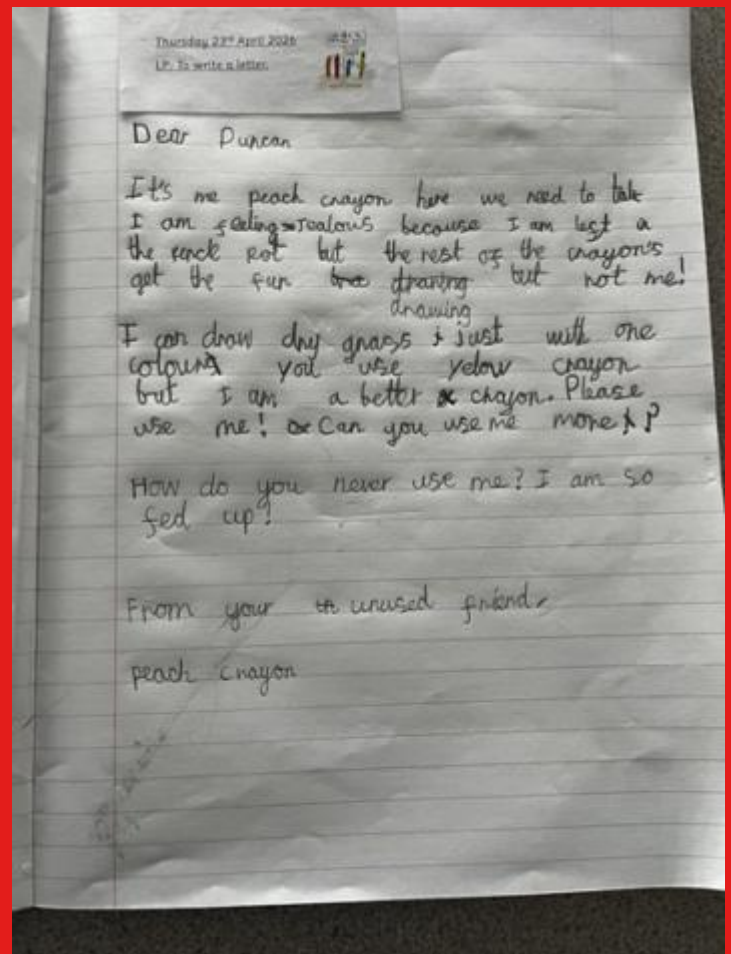 Thursday 23rd April 2026
LP: To write a letter.
Dear Duncan
It's me peach crayon here we need to talk
I am feeling Jealous because I am lest a
the penck pot but the rest of the crayon's
get the fun draning but not me!
drawing
I can draw dry grass just with one
colour you use yelow crayon
but I am a better crayon. Please
use me! Can you use me more ?
How do you never use me? I am so
fed up!
From your unused friend,
peach crayon